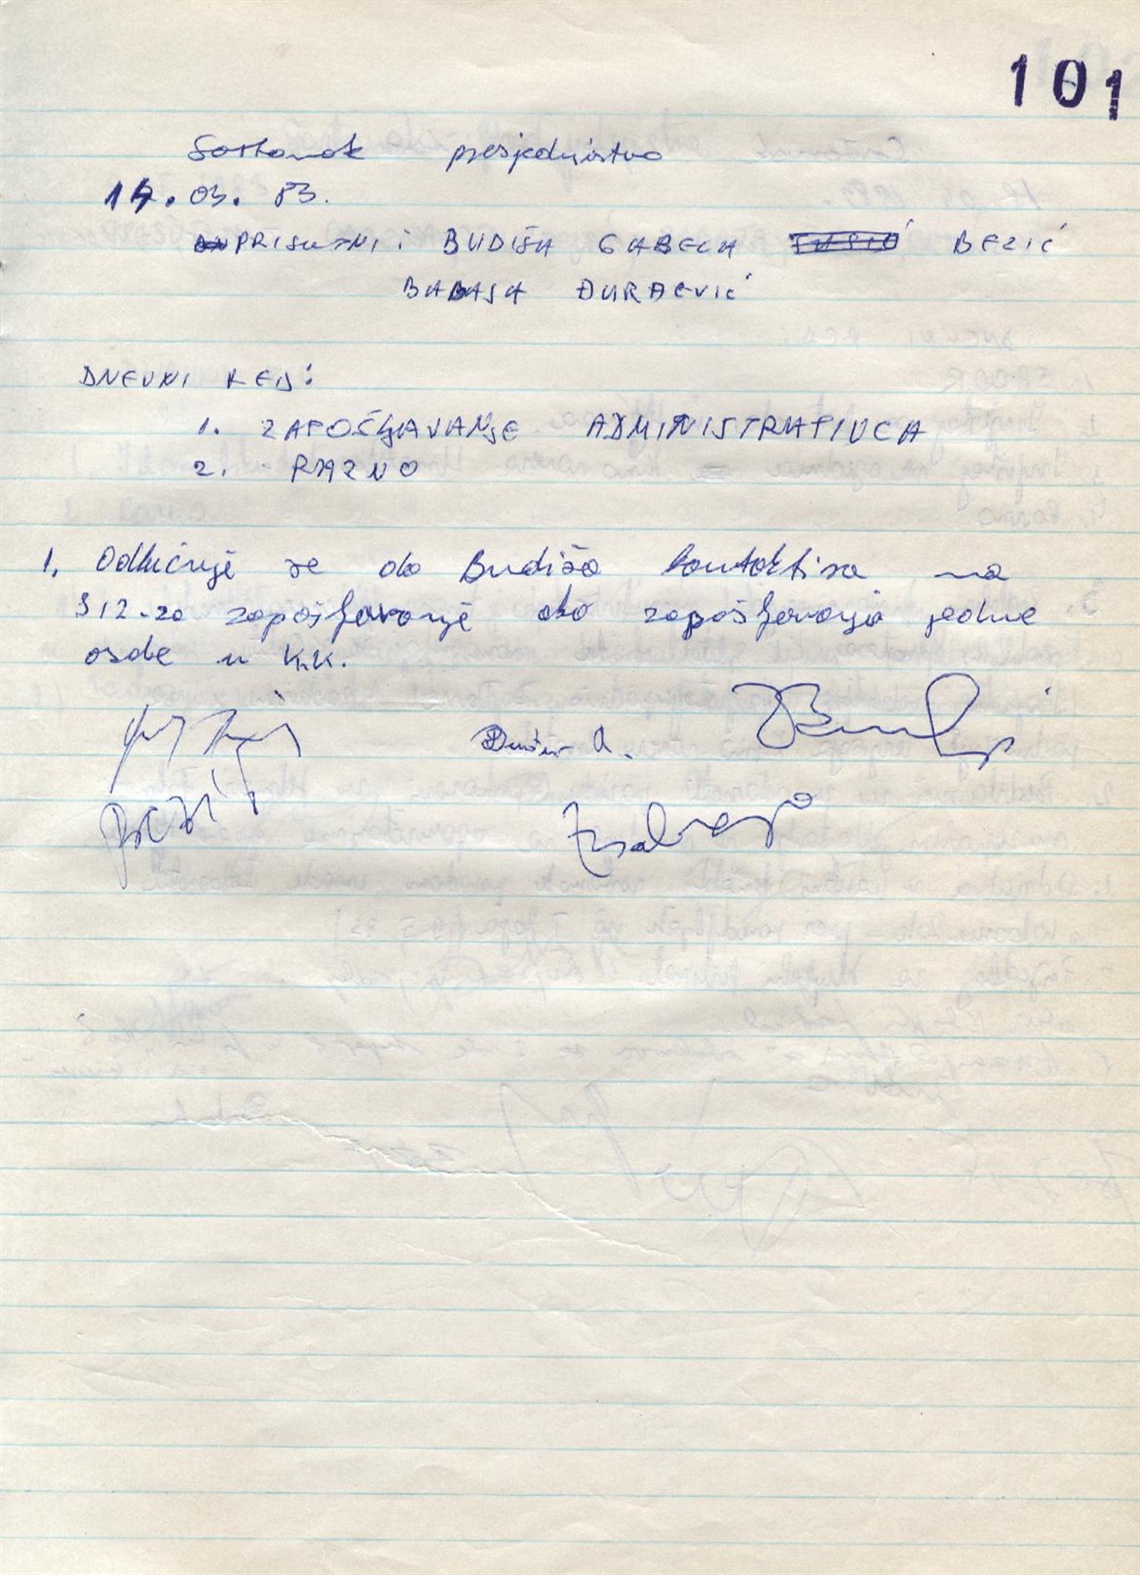 101
Sastanak presjedništva
14.03.83.
PRISUTNI: BUDIŠA GABELA BEZIĆ
BABAJA ĐURAĆVIĆ
DNEVNI RED:
1. ZAPOŠLJAVANJE ADMINISTRATIVCA
2. RAZNO
1. Odlučuje se da Budiša kontaktira na
SIZ-za zapošljavanje oko zapošljavanja jedne
osobe u K.K.
BEZIĆ